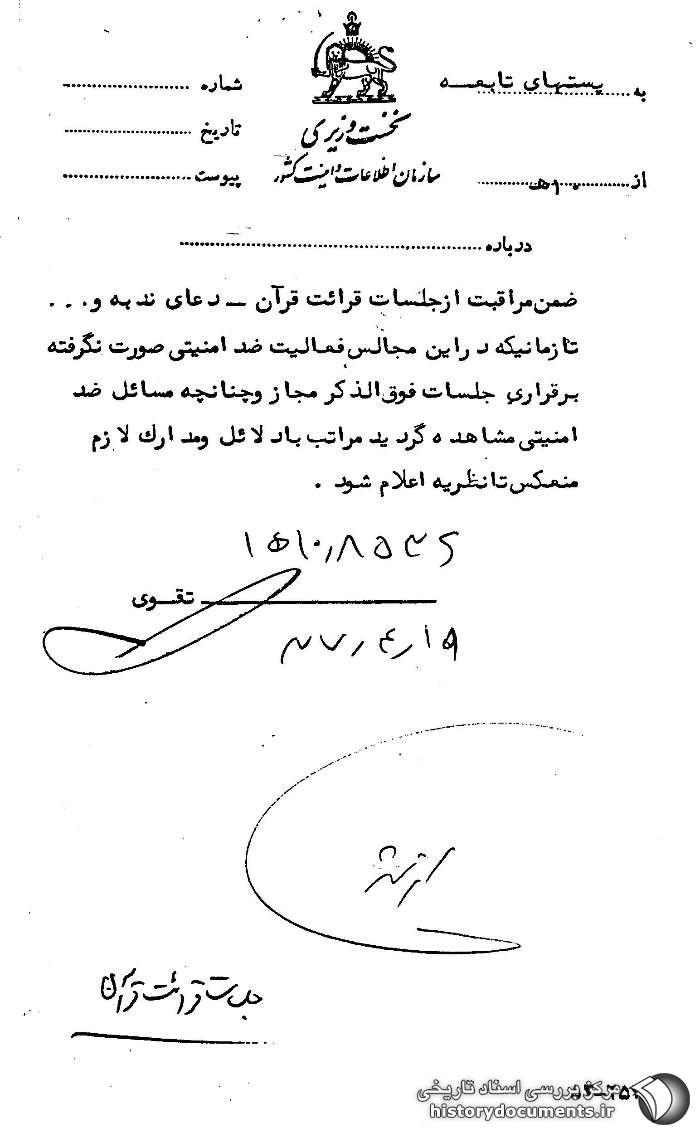 به پستهای تابعه
شماره
نخست وزیری
تاریخ
سازمان اطلاعات و امنیت کشور
از ۱۰ ه
پیوست
درباره
ضمن مراقبت از جلسات قرائت قرآن ــ دعای ندبه و . . .
تا زمانیکه در این مجالس فعالیت ضد امنیتی صورت نگرفته
برقراری جلسات فوق الذکر مجاز و چنانچه مسائل ضد
امنیتی مشاهده گردید مراتب با دلائل و مدارک لازم
منعکس تا نظریه اعلام شود .
تقوی
جلسات قرائت قرآن
مرکز بررسی اسناد تاریخی
historydocuments.ir